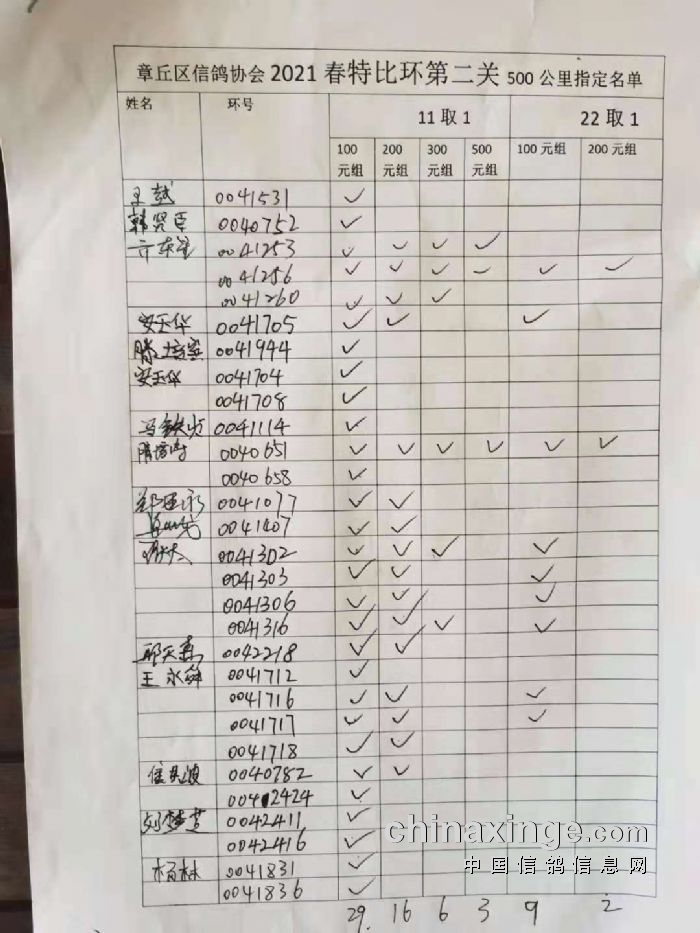 章丘区信鸽协会 2021 春特比环第二关 500 公里指定名单
姓名 环号 11 取 1 22 取 1
100元组 200元组 300元组 500元组 100 元组 200 元组
王 0041531 ✓
韩贤臣 0040752 ✓
0041253 ✓ ✓ ✓ ✓
0041256 ✓ ✓ ✓ ✓ ✓ ✓
0041260 ✓ ✓ ✓
安玉华 0041705 ✓ ✓ ✓
0041944 ✓
安玉华 0041704 ✓
0041708 ✓
马 0041114 ✓
隋 0040651 ✓ ✓ ✓ ✓ ✓ ✓
0040658 ✓
郑 永 0041077 ✓ ✓
0041407 ✓ ✓
0041302 ✓ ✓ ✓ ✓
0041303 ✓ ✓ ✓
0041306 ✓ ✓ ✓
0041316 ✓ ✓ ✓ ✓
0042218 ✓ ✓
王永舜 0041712 ✓
0041716 ✓ ✓ ✓
0041717 ✓ ✓ ✓
0041718 ✓ ✓
信 波 0040782 ✓ ✓
0042424 ✓
刘梦 0042411 ✓
0042416 ✓
杨林 0041831 ✓
0041836 ✓
29. 16 6 3 9 2
chinaxinge.com
中国信鸽信息网